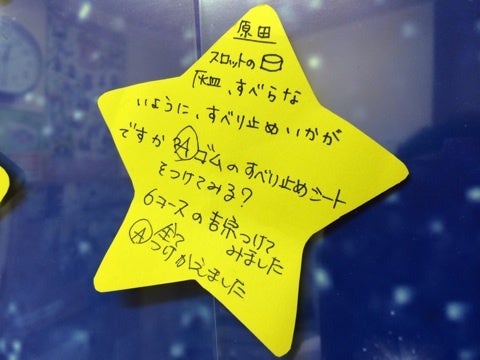 原田
スロットの
灰皿、すべらな
いように、すべり止めいかが
ですか？Aゴムのすべり止めシート
をつけてみる？
6コースのつけて
みました
A全て
つけかえました